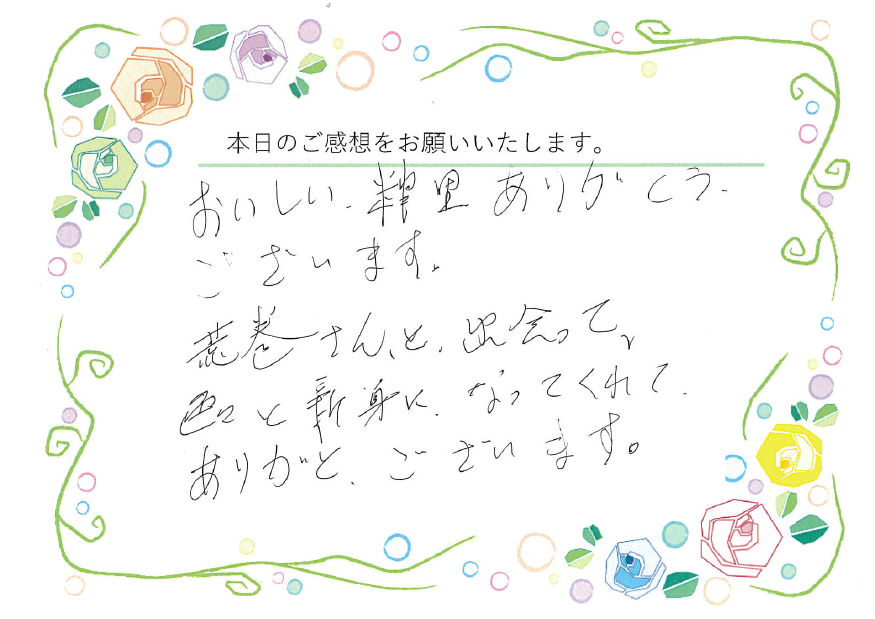 本日のご感想をお願いいたします。
おいしい、料理 ありがとう、
ございます。
さん、と、出会って、
色々と新身に、なってくれて、
ありがと、ございます。